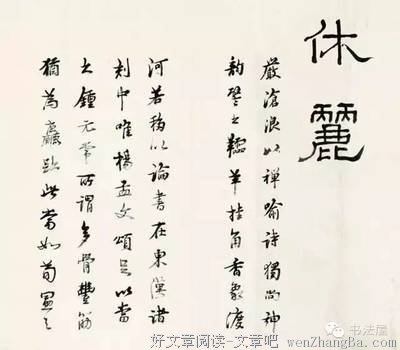 休麗
嚴滄浪以禪喻詩獨尚神
韵譬之羊挂角香象渡
河若移以論書在東漢諸
刻中唯楊孟文頌足以當
之鍾元常所謂多骨豐筋
猶為麤跡此當如
书法屋
好文章阅读-文章吧 wenZhangBa.com